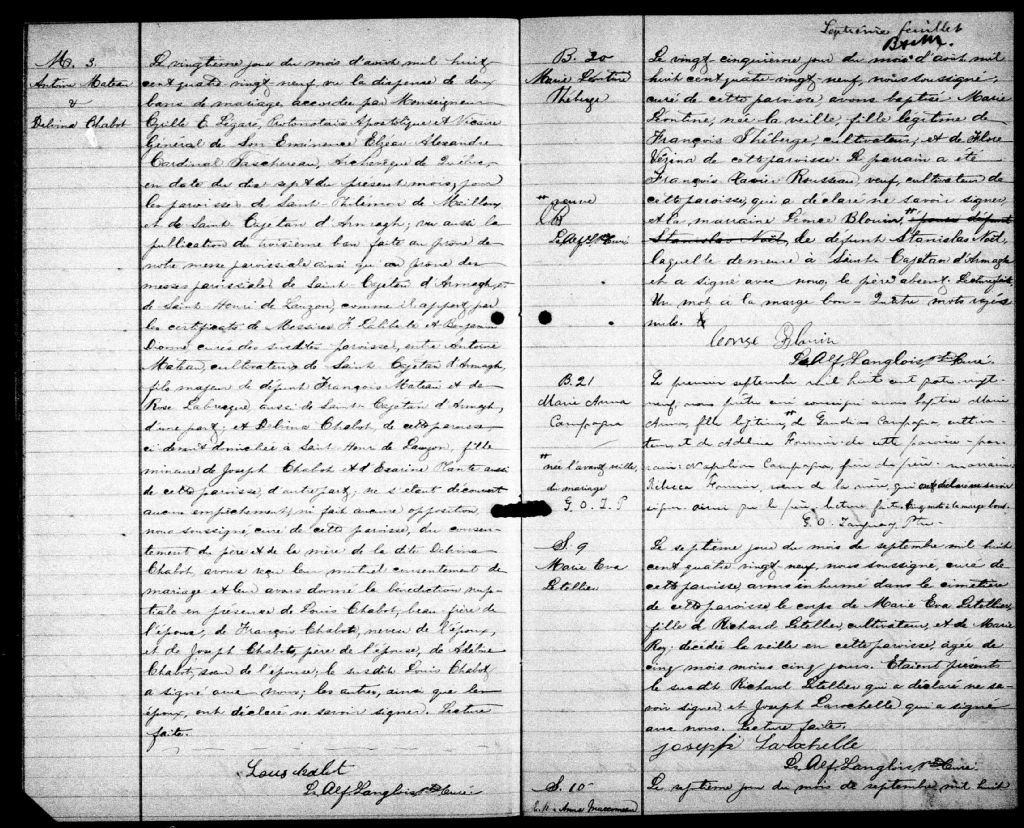 M. 3.
Antoine Mateau
&
Delvina Chabot
Le vingtième jour du mois d'août mil huit
cent quatre vingt neuf, vu la dispense de deux
bans de mariage accordée par Monseigneur
Cyrille E. Légaré, Protonotaire Apostolique et Vicaire
Général de Son Eminence Elzéar Alexandre
Cardinal Taschereau, Archevêque de Québec,
en date du dix sept du présent mois, pour
les paroisses de Saint Philémon de Mailloux
et de Saint Cajetan d'Armagh, vu aussi la
publication du troisième ban faite au prône de
notre messe paroissiale ainsi qu'au prône des
messes paroissiales de Saint Cajetan d'Armagh, et
de Saint Henri de Lauzon, comme il appert par
les certificats de Messires F. et Benjamin
curés des susdites paroisses, entre Antoine
Mateau, cultivateur, de Saint Cajetan d'Armagh,
fils majeur de défunt François Mateau et de
Rose Labrecque aussi de Saint Cajetan d'Armagh,
d'une part; et Delvina Chabot, de cette paroisse
ci devant domiciliée à Saint Henri de Lauzon, fille
mineure de Joseph Chabot et d'Exarine Plante aussi
de cette paroisse, d'autre part; ne s'étant découvert
aucun empêchement, ni fait aucune opposition
nous soussigné, curé de cette paroisse, du consen-
tement du père et de la mère de la dite Delvina
Chabot, avons reçu leur mutuel consentement de
mariage et leur avons donné la bénédiction nup-
tiale en présence de Louis Chabot, beau-frère de
l'épouse, de François Chabot, neveu de l'époux,
et de Joseph Chabot, père de l'épouse, de Adéline
Chabot, sœur de l'épouse; le susdit Louis Chabot
a signé avec nous; les autres, ainsi que les
époux, ont déclaré ne savoir signer. Lecture
faite.
Louis
Ls Alf. Langlois, Ptre Curé
Septième feuillet
B. 20
Marie Léontine
Théberge
Le vingt cinquième jour du mois d'août mil
huit cent quatre vingt-neuf, nous soussigné,
curé de cette paroisse, avons baptisé Marie
Léontine, née la veille, fille légitime de
François Théberge, cultivateur, et de Flore
Vézina de cette paroisse. Le parrain a été
François Xavier Rousseau, veuf, cultivateur de
cette paroisse, qui a déclaré ne savoir signer,
et la marraine Blouin, " défunt
Stanislas Noël, de défunt Stanislas Noël,
laquelle demeure à Saint Cajetan d'Armagh
et a signé avec nous, le père absent. Lecture faite.
Un mot à la marge bon – Quatre mots rayés
nuls.
" veuve
B
Ls Alf. L. Ptre Curé
Blouin
Ls Alf. Langlois, Ptre Curé.
B. 21
Marie Anna
Campagna
Le premier septembre mil huit cent quatre vingt-
neuf, nous prêtre curé soussigné avons baptisé Marie
Anna, fille légitime, " de Gaudias Campagna, cultiva-
teur, et de Adéline Fournier de cette paroisse – par-
rain: Napoléon Campagna, frère du père: marraine
Rébecca Fournier, sœur de la mère, qui ont déclaré ne savoir
signer ainsi que le père. Lecture faite. Cinq mots à la marge bons.
G. O. Tanguay Ptre
" née l'avant veille,
du mariage
G. O. T. P
S. 9
Marie Eva
Létellier
Le septième jour du mois de septembre mil huit
cent quatre vingt neuf, nous soussigné, curé de
cette paroisse, avons inhumé dans le cimetière
de cette paroisse, le corps de Marie Eva Létellier,
fille de Richard Létellier, cultivateur, et de Marie
Roy, décédée la veille en cette paroisse, âgée de
cinq mois moins cinq jours. Étaient présents
le susdit Richard Létellier qui a déclaré ne sa-
voir signer et Joseph Larochelle qui a signé
avec nous. Lecture faite.
Joseph Larochelle
Ls Alf. Langlois, Ptre Curé
S. 10
Anna
Le septième jour du mois de septembre mil huit